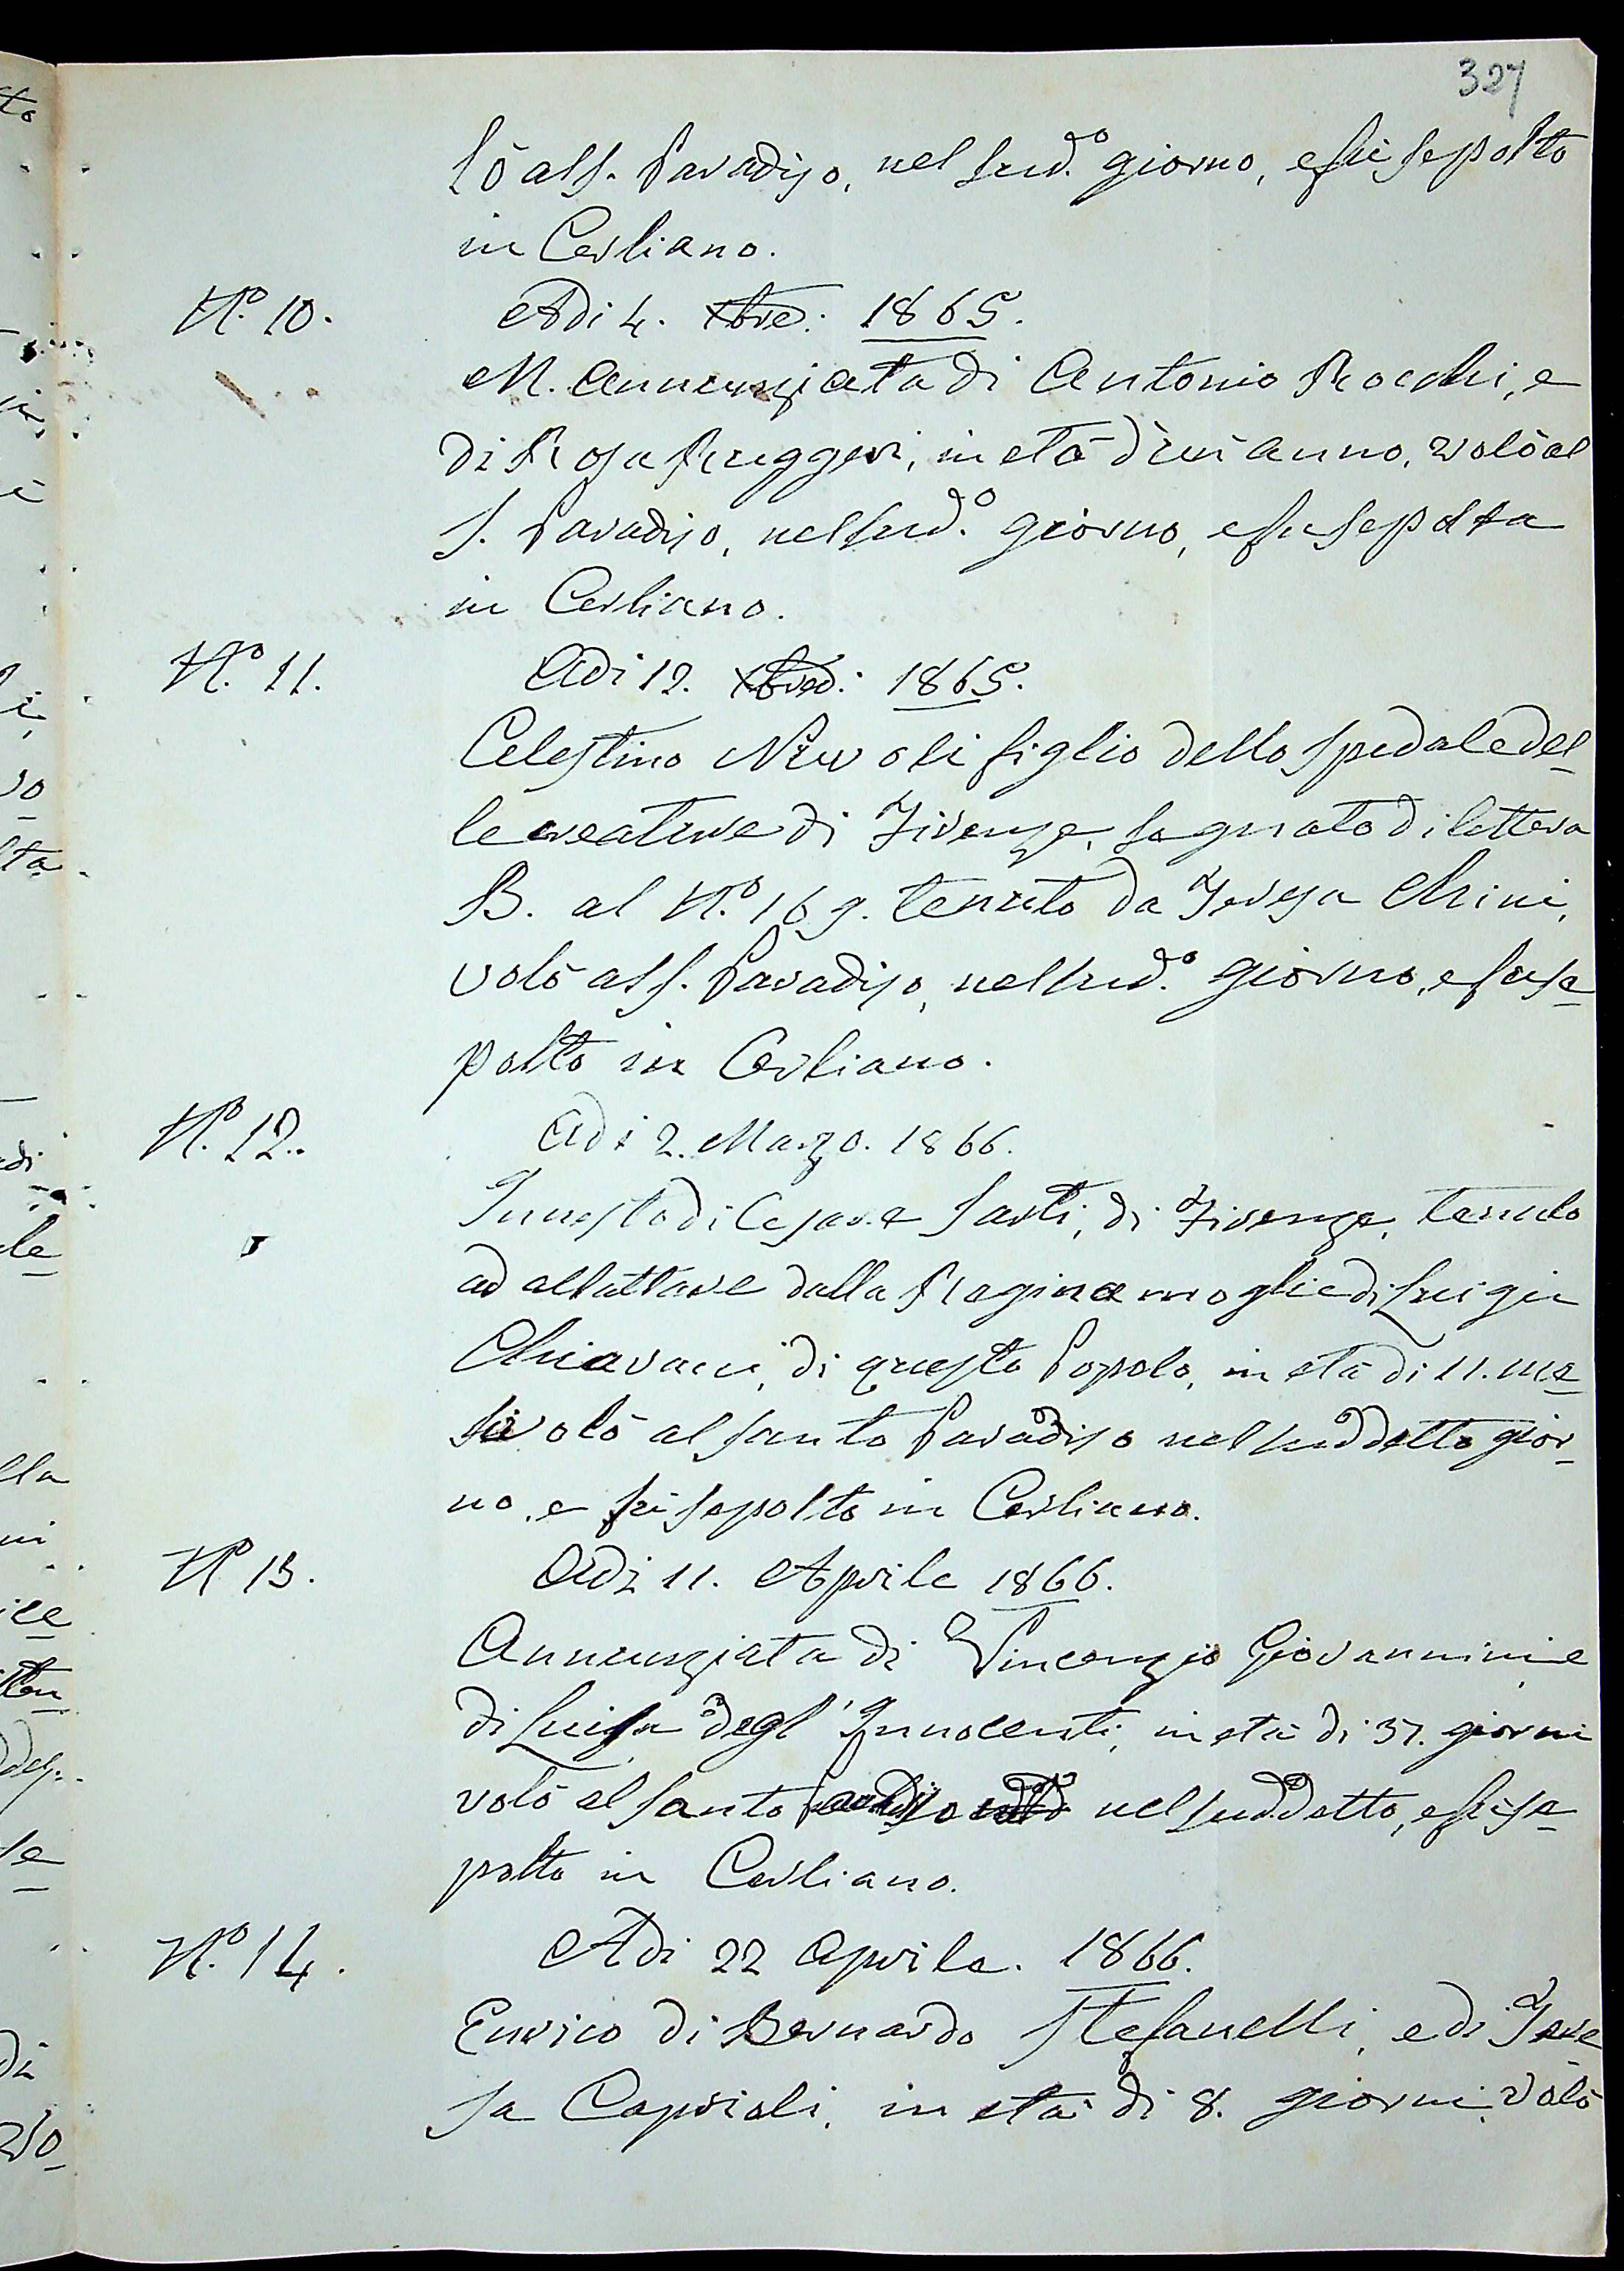 327
lò al S. Paradiso, nel sud.º giorno, e fù sepolto
in Cerliano.
N.º 10. Adi 4. Xbre: 1865.
M. Annunziata di Antonio Rocchi, e
di Rosa Ruggeri, in età d'un anno, volò al
S. Paradiso, nel sud.º giorno, e fu sepolta
in Cerliano.
N.º 11. Adi 12. Xbre: 1865.
Celestino Nuvoli figlio dello Spedale del-
le creature di Firenze, segnato di lettera
B. al N.º 169. tenuto da Teresa Chini,
volò al S. Paradiso, nel sud.º giorno, e fu se-
polto in Cerliano.
N.º 12. Adi 2. Marzo. 1866.
di Cesare Sarti, di Firenze, tenuto
ad allattare dalla Regina moglie di Luigi
Chiavacci, di questo Popolo, in età di 11. me-
si volò al santo Paradiso nel suddetto gior-
no, e fù sepolto in Cerliano.
Nº 13. Adi 11. Aprile 1866.
Annunziata di Vincenzio Giovannini e
di Luisa degl'Innocenti, in età di 37. giorni
volò al santo Paradiso nel suddetto, e fù se-
polta in Cerliano.
N.º 14. Adi 22 Aprile. 1866.
Enrico di Bernardo Stefanelli, e di Tere
sa Caprioli, in età di 8. giorni, volò